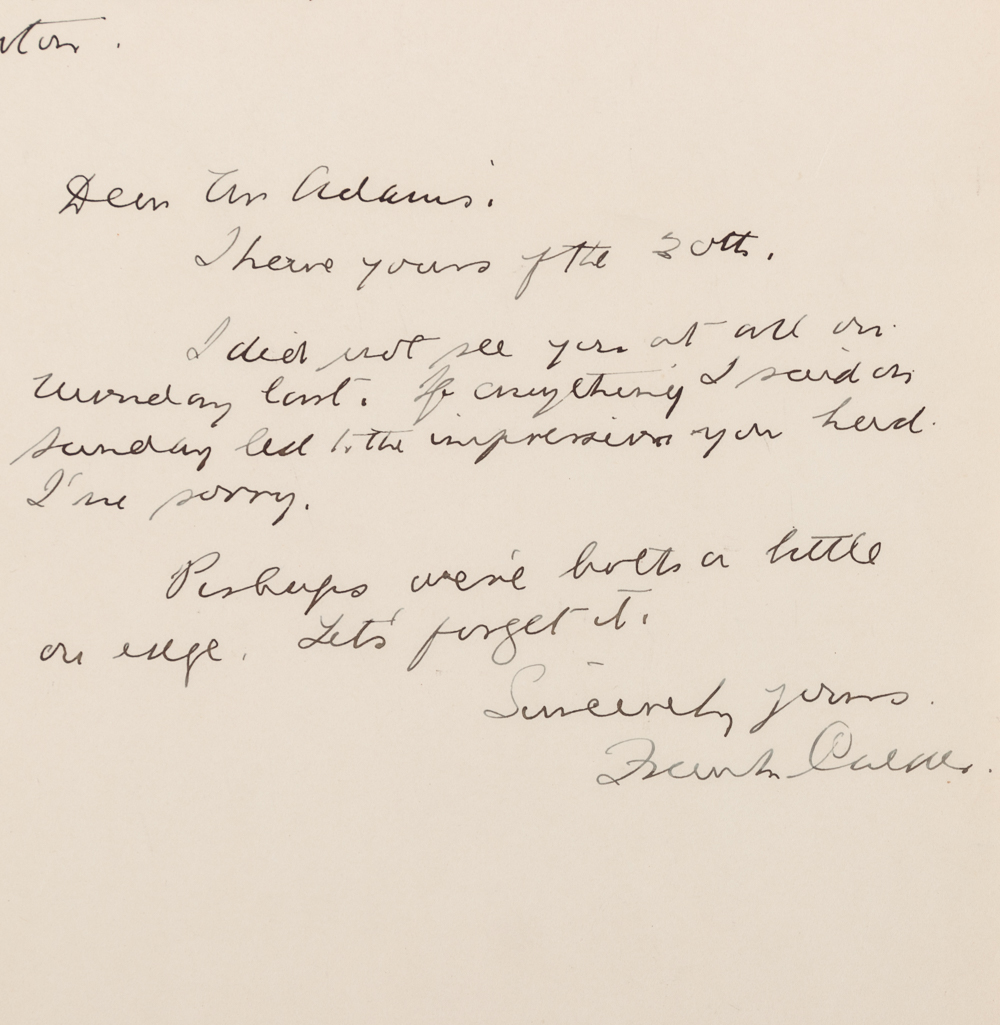 Dear Mr Adams:
I have yours of the 30th.
I did not see you at all on
Monday last. If anything I said on
Sunday led to the impression you had
I'm sorry.
Perhaps we're both a little
on edge. Let's forget it.
Sincerely yours
Frank Calder.